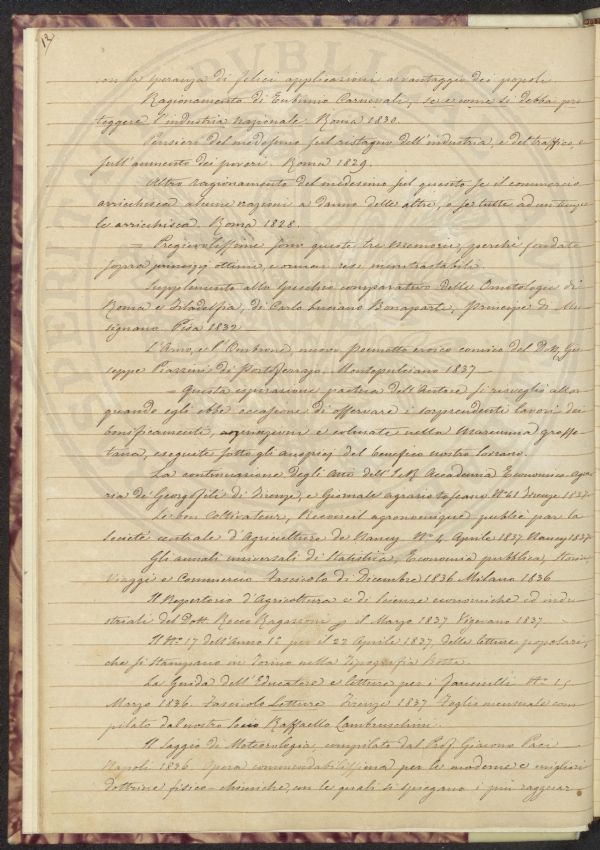 12
con la speranza di felici applicazioni a vantaggio dei popoli.
Ragionamento di Eutimio Carnevali, se e come si debba pro
teggere l'industria nazionale. Roma 1830.
Pensieri del medesimo sul ristagno dell'industria, e del traffico, e
sull'aumento dei poveri. Roma 1829.
Altro ragionamento del medesimo sul quesito se il commercio
arricchisca alcune nazioni a danno delle altre, o se tutte ad un tempo
le arricchisca. Roma 1828.
= Pregievolissime sono queste tre Memorie, perchè fondate
sopra principj ottimi, e ormai resi incontrastabili.
Supplemento allo Specchio comparativo delle Ornitologie di
Roma e Filadelfia, di Carlo Luciano Bonaparte, Principe di Mu
signano. Pisa 1832
L'Arno, e l'Ombrone, nuovo Poemetto eroico comico del Dott. Giu
seppe Pazzini di Portoferrajo. Montepulciano 1837
= Questa ispirazione poetica dell'Autore si risvegliò allor
quando egli ebbe occasione di osservare i sorprendenti lavori dei
bonificamenti, e colmate nella Maremma grosse
tana, eseguite sotto gli auspicj del benefico nostro Sovrano.
La continuazione degli Atti dell'I. e R. Accademia Economico-Agra
ria dei Georgofili di Firenze, e Giornale agrario toscano N.º 41 Firenze 1837.
Le bon Cultivateur, Recueil agronomique publié par la
Société centrale d'Agriculture de Nancy N.º 4 Aprile 1837. Nancy 1837.
Gli annali universali di Statistica, Economia pubblica, Storia,
Viaggi e Commercio. Fascicolo di Dicembre 1836. Milano 1836
Il Repertorio d'Agricoltura e di Scienze economiche ed indu
striali del Dott. Rocco Ragazzoni il Marzo 1837.  1837.
Il N.º 17 dell'Anno 1º per il 22 Aprile 1837 delle letture popolari,
che si stampano in Torino nella Tipografia
La Guida dell'Educatore e letture per i fanciulli N.º 15
Marzo 1836. Fascicolo Letture Firenze 1837. Foglio mensuale com
pilato dal nostro Socio Raffaello Lambruschini.
Il Saggio di Meteorologia, compilato dal Prof. Giacomo Paci
Napoli 1836. Opera commendabilissima per le moderne e migliori
dottrine fisico-chimiche, con le quali si spiegano i più ragguar